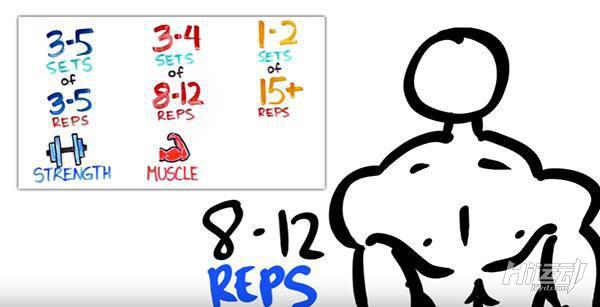 3-5
SETS
of
3-5
REPS
STRENGTH
3-4
SETS
of
8-12
REPS
MUSCLE
1-2
SETS
of
15+
REPS
8-12
REPS
Hi运动